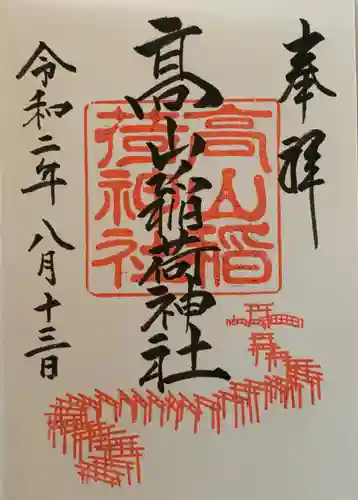 奉拝
髙山稲荷神社
髙山稲
荷神社
令和二年八月十三日